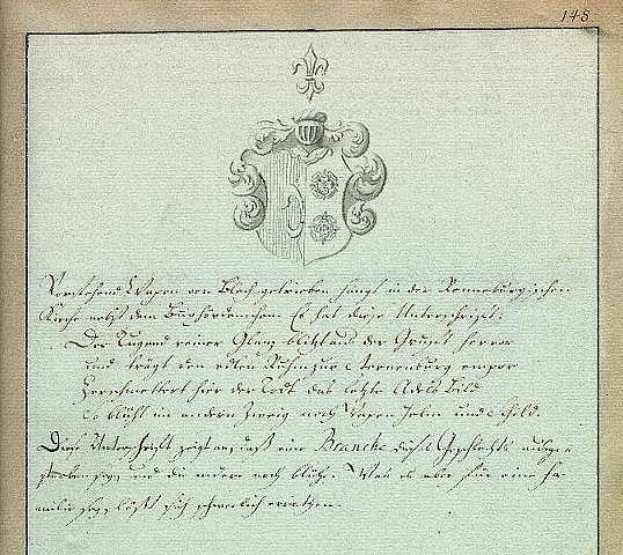 148
Vorstehend Wapen von Blech getrieben hängt in der Ronneburgischen
Kirche nebst dem Es hat diese Unterschrift:
Der Tugend reiner Glanz blitzt aus der Gruft hervor
und trägt den edlen Ruhm zur Sternenburg empor
Zerschmettert hier der Todt das letzte Adels Bild
So blüht im andern Zweig noch Wapen Helm und Schild.
Diese Unterschrift zeigt an, daß eine Branche dieses Geschlechts ausge-
storben sey, und die andere noch blühe. Was es aber für eine Fa-
milie sey, läßt sich schwerlich errathen.